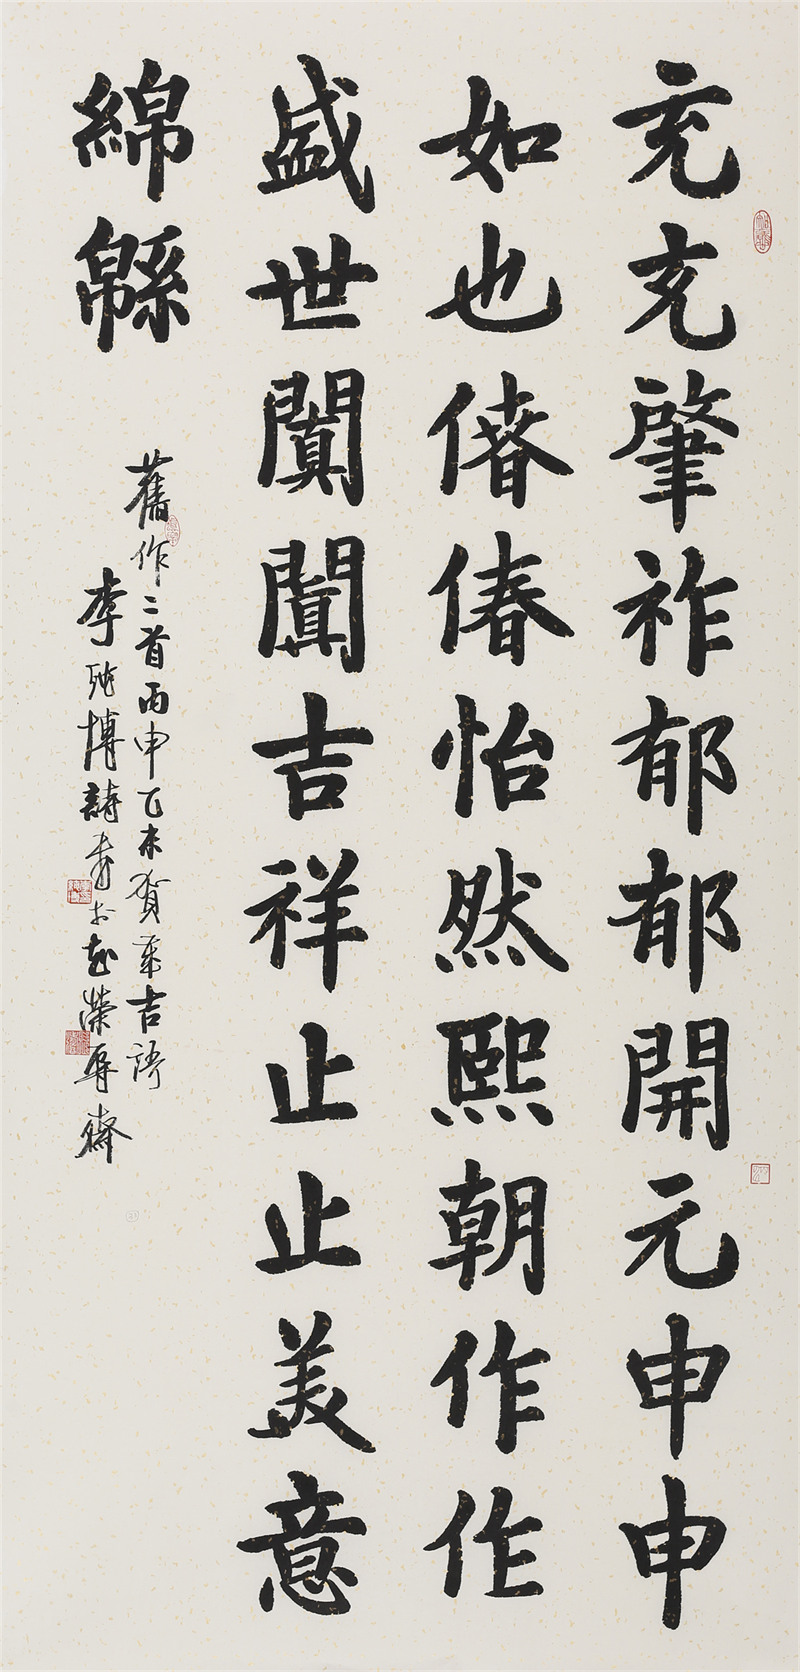 充充肇祚郁郁開元申申
如也偆偆怡然熙朝作作
盛世闐闐吉祥止止美意
綿緜
舊作二首丙申乙未賀年吉語
李博詩書於榮辱齋